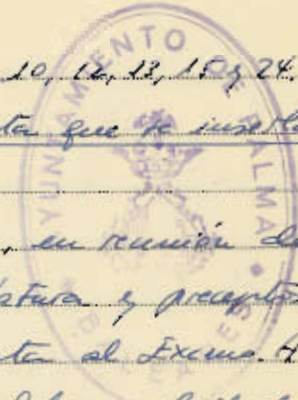 10, 12, 13, 15 y 24.
ta que se inserta
, en reunión de
y precepto
ta al Excmo. A
AYUNTAMIENTO DE PALMA